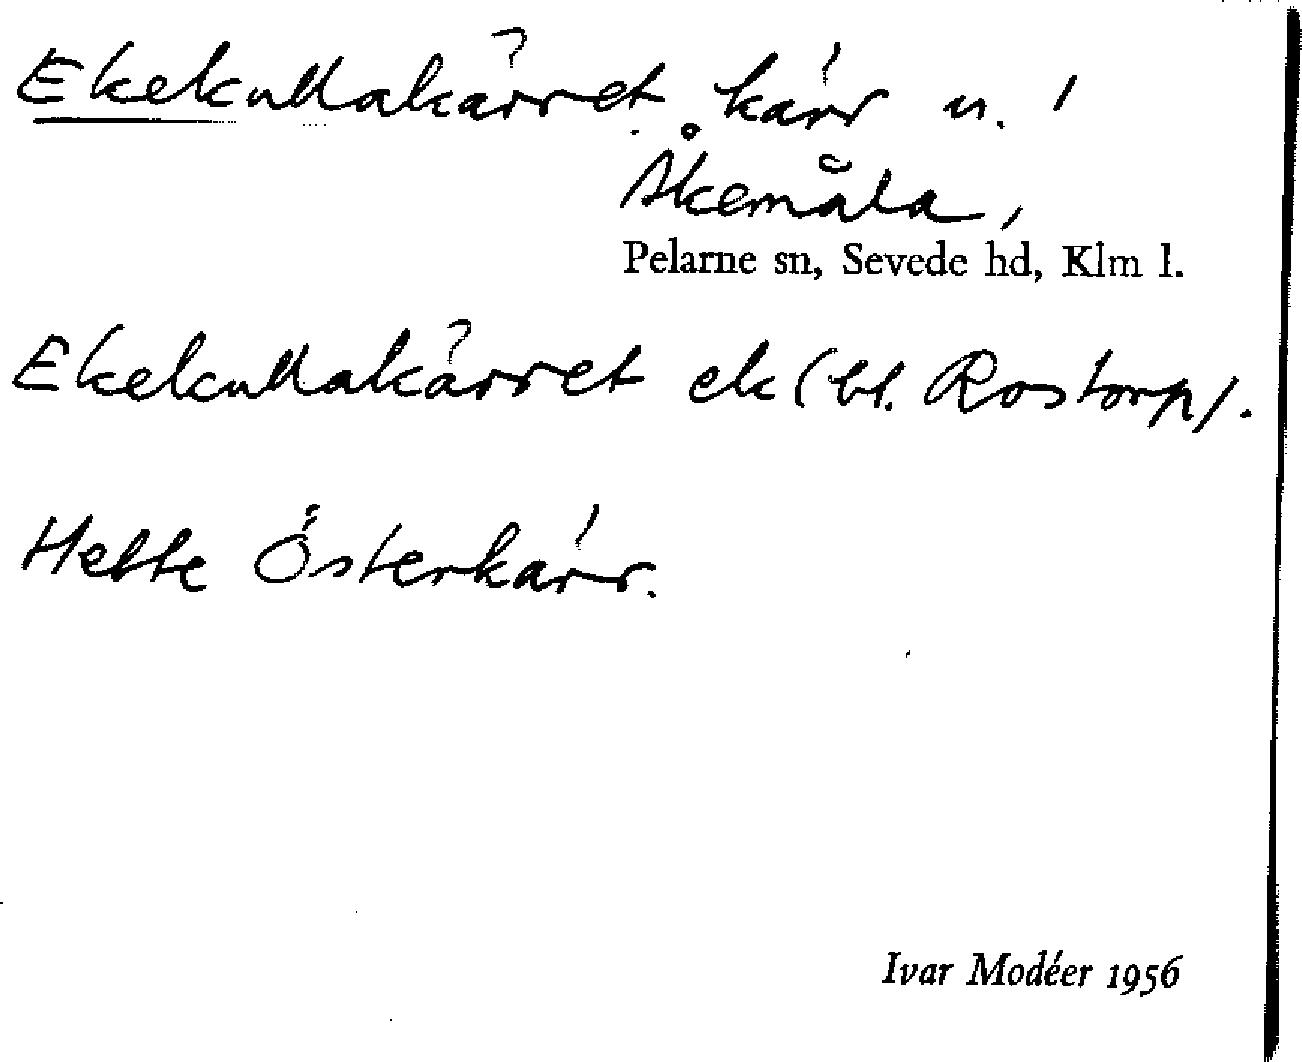 Ekekullakärret, kärr n. /
Åkemåla,
Pelarne sn, Sevede hd, Klm l.
Ekekullakärret ek (bl. Rostorp).
Hette Österkärr.
Ivar Modéer 1956